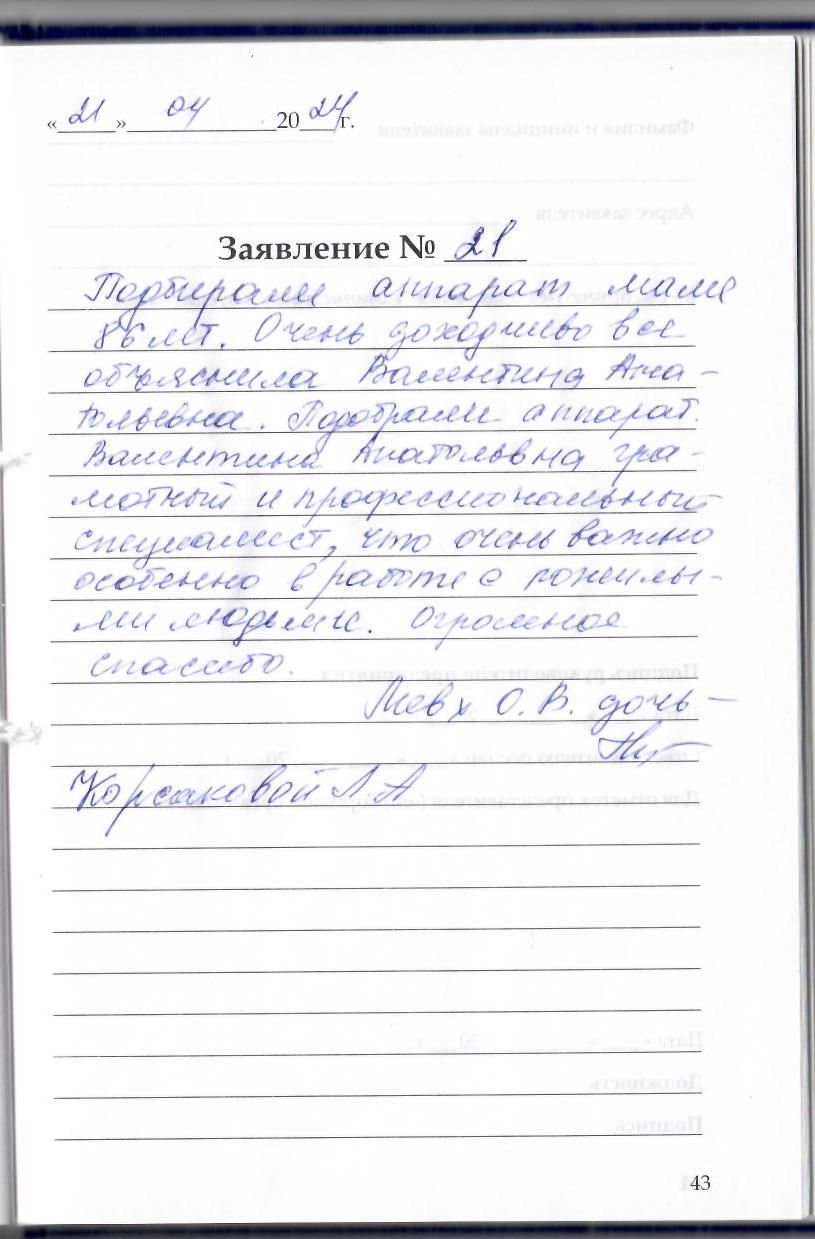 «21» 04 2024 г.
Заявление № 21
Подбирали аппарат маме
86 лет. Очень доходчиво все
объяснила Валентина Ана-
тольевна. Подобрали аппарат.
Валентина Анатольевна гра-
мотный и профессиональный
специалист, что очень важно
особенно в работе с пожилы-
ми людьми. Огромное
спасибо.
О. В. дочь –
Корсаковой Л. А
43